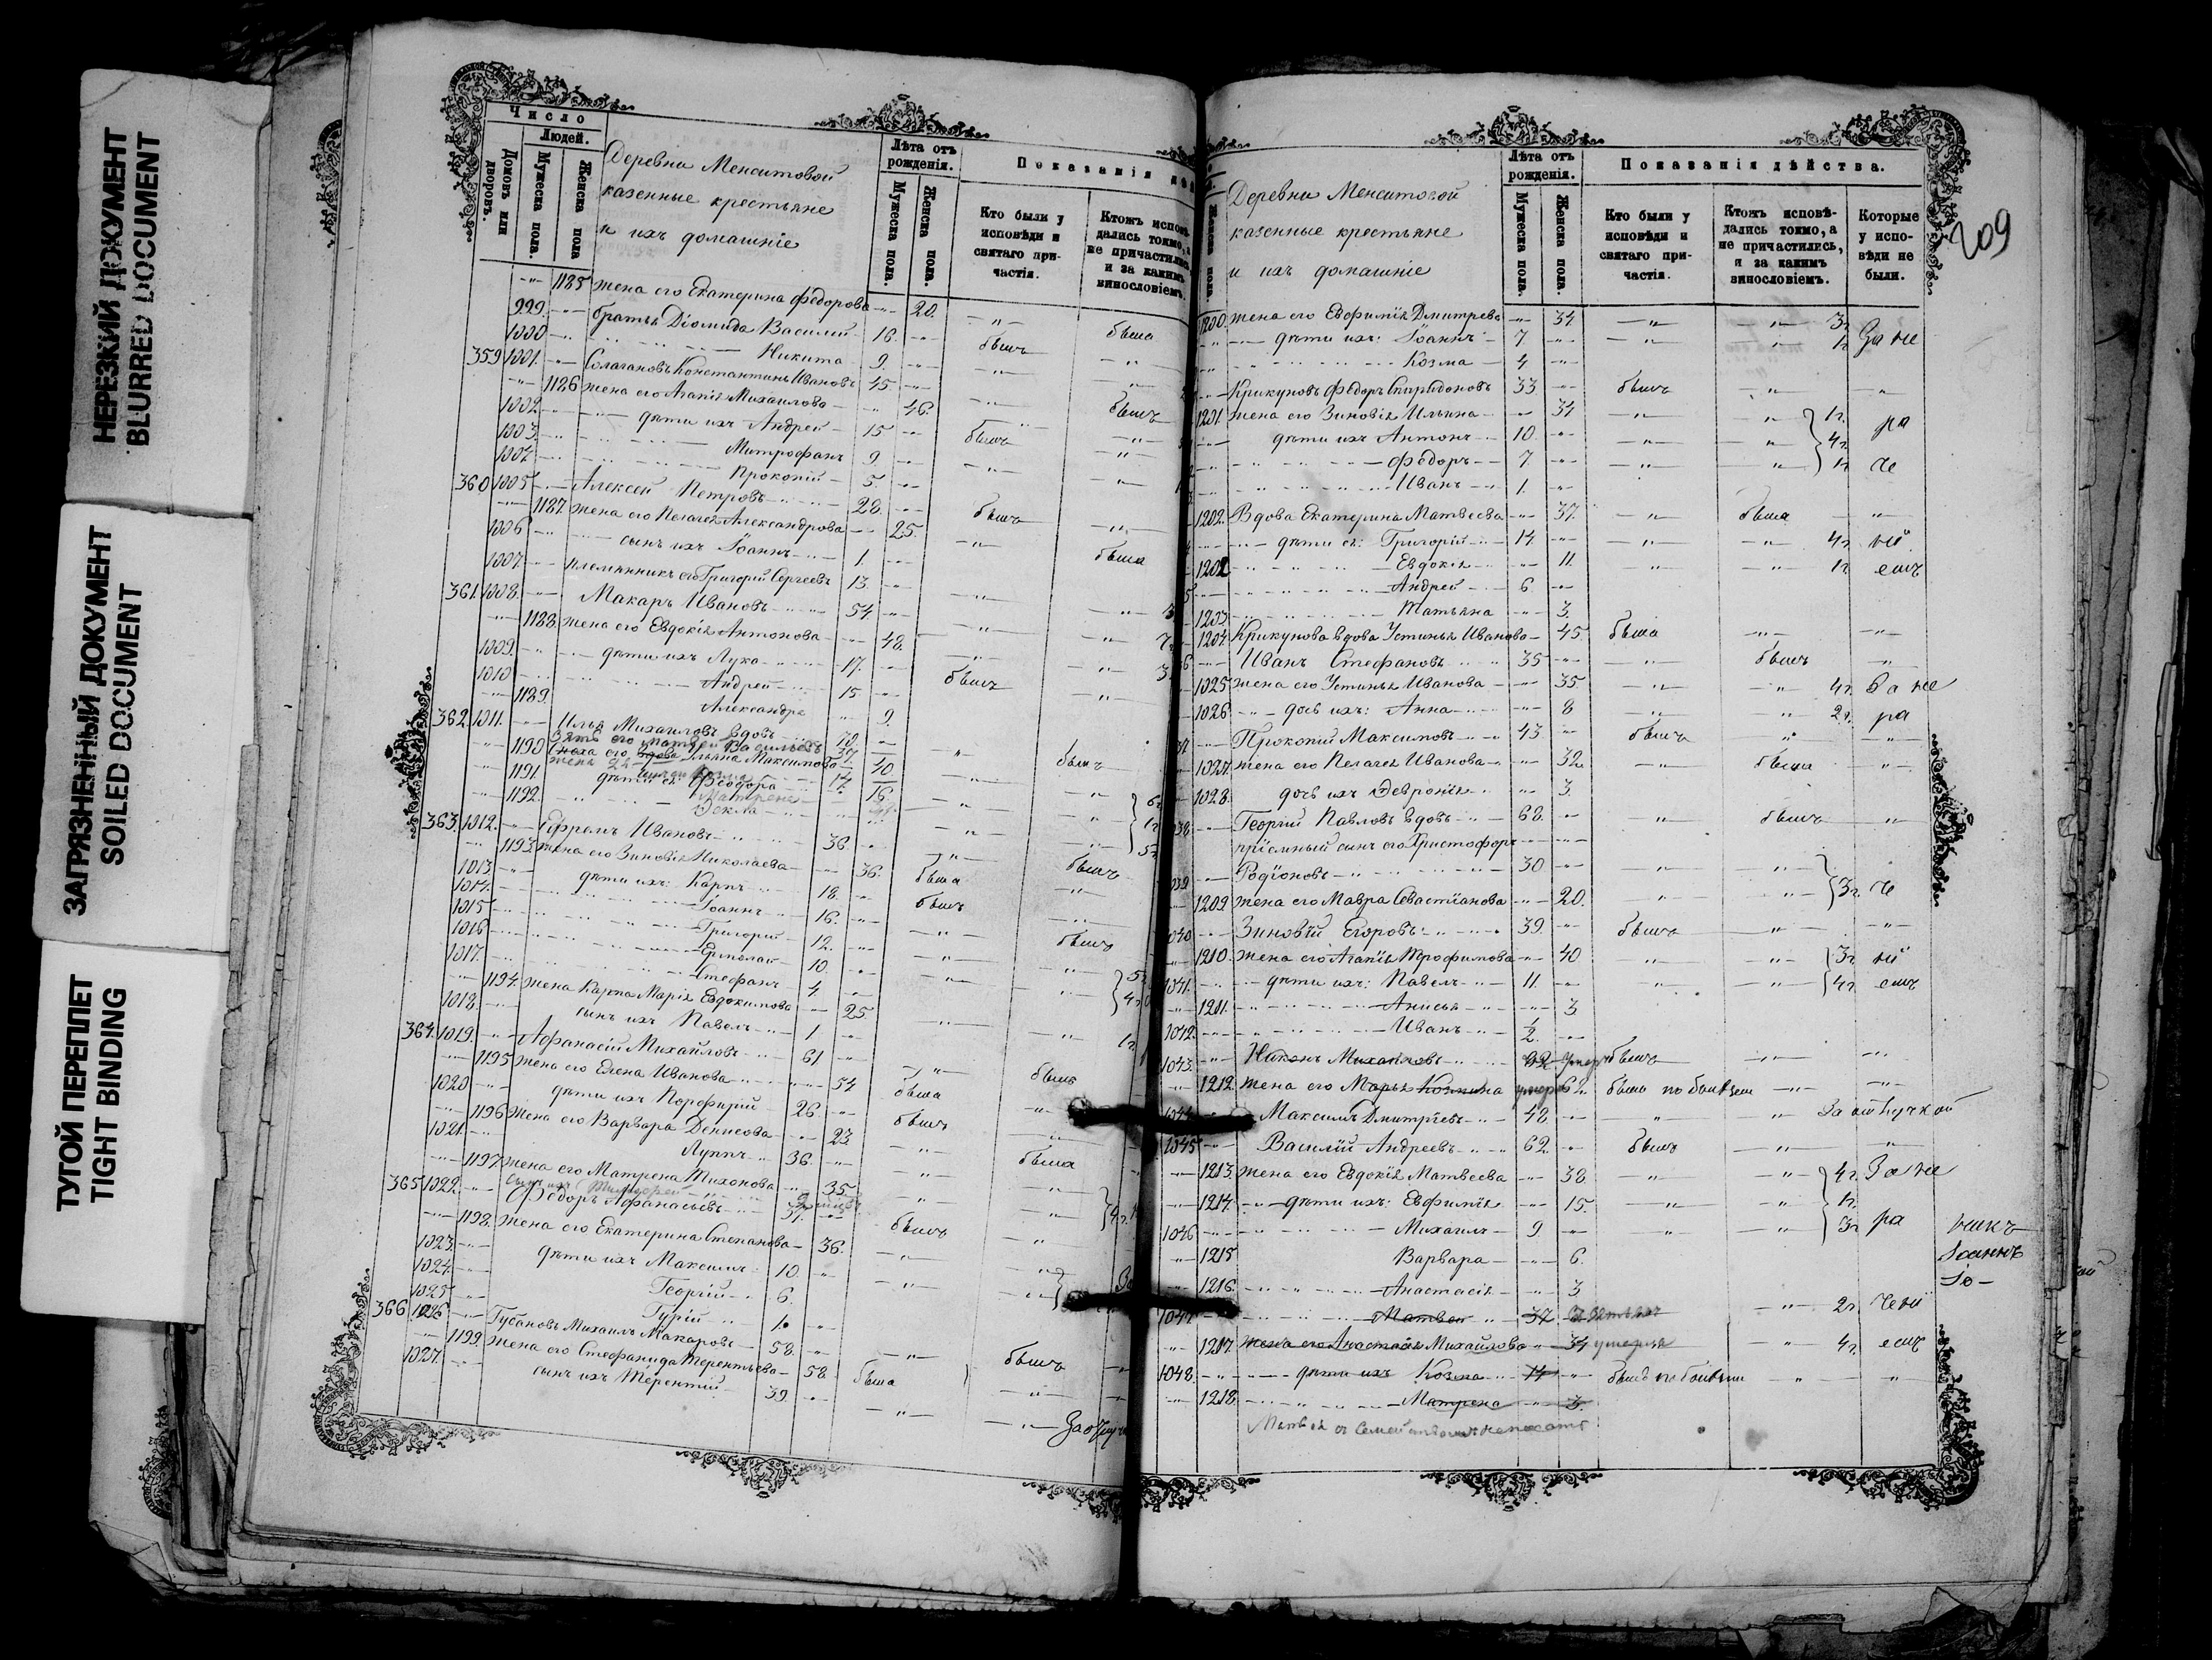 НЕРЕЗКИЙ ДОКУМЕНТ
BLURRED DOCUMENT
ЗАГРЯЗНЕННЫЙ ДОКУМЕНТ
SOILED DOCUMENT
ТУГОЙ ПЕРЕПЛЕТ
TIGHT BINDING
Число
Людей.
Домовъ или дворовъ.
Мужеска пола.
Женска пола
Деревни Менситовой
казенные крестьяне
и ихъ домашніе
Лѣта отъ рожденія.
Мужеска пола.
Женска пола.
Показанія
Кто были у исповѣди и святаго причастія.
Ктожъ исповѣдались токмо, а не причастились, и за какимъ винословіемъ.
1185 жена его Екатерина Федорова 20.
999. братья Діомида Василій 16. была
1000 Никита 9. былъ
359 1001. Солагановъ Константинъ Ивановъ 45
1186 жена его Агапія Михаилова 46.
1002 дѣти ихъ Андрей 15 былъ
1003. Митрофанъ 9. былъ
1004 Прокопій 5.
360 1005 Алексѣй Петровъ 28.
1187 жена его Пелагея Александрова 25. былъ
1006 сынъ ихъ Іоаннъ 1. была
1007 племянникъ его Григорій Сергеевъ 13
361. 1008. Макаръ Ивановъ 54.
1188. жена его Евдокія Антонова 48.
1009. дѣти ихъ Лука 17.
1010 Андрей 15 былъ
1189. Александра 9.
362. 1011. Илья Михаиловъ вдовъ 70.
Зять его Матвей Васильевъ 37
1190 Сноха его вдова Ульяна Максимова 40 былъ
1191. дѣти ея Феодора 16
1192. Матрена
Fекла
363. 1012. Ефремъ Ивановъ 36
1193. жена его Зиновія Николаева 36. былъ
1013. дѣти ихъ: Карпъ 18. была
1014. Іоаннъ 16. былъ
1015 Григорій 12. былъ
1016 Ермолай 10.
1017. Стефанъ 4.
1194. жена Карпа Марія Евдокимова 25
1018. сынъ ихъ Павелъ 1
364. 1019. Афанасій Михайловъ 61
1195 жена его Елена Иванова 54 была
1020 дѣти ихъ Порфирій 26. была
1196 жена его Варвара Денисова 23 былъ
1021. Луппъ 36. была
1197 жена его Матрена Тихонова 35.
сынъ ихъ Тимофей
365 1022. Федоръ Афанасьевъ 37.
1198. жена его Екатерина Степанова 36. былъ
1023. дѣти ихъ Максимъ 10.
1024. Георгій 6.
1025 Гурій 1.
366 1026. Губановъ Михаилъ Макаровъ 58.
1199. жена его Стефанида Терентьева 58. былъ
1027. сынъ ихъ Терентій 39. была
209
Женска пола.
Деревни Менситовой
казенные крестьяне
и ихъ домашніе
Лѣта отъ рожденія.
Мужеска пола.
Женска пола.
Показанія дѣйства.
Кто были у исповѣди и святаго причастія.
Ктожъ исповѣдались токмо, а не причастились, и за какимъ винословіемъ.
Которые у исповѣди не были.
1200. жена его Евфимія Дмитрева 34 3г.
дѣти ихъ: Іоаннъ 7 1г. За не
Козма 4
Крикуновъ Федоръ Спиридоновъ 33 былъ
1201. жена его Зиновія Ильина 34 1г. ра
дѣти ихъ Антонъ 10. 4г.
Федоръ 7. 1г. де
Иванъ 1.
1202. Вдова Екатерина Матвеева 37. была
дѣти ея: Григорій 14. 4г. ній
1202 Евдокія 11. 1г. емъ
Андрей 6
1203. Татьяна 3.
1204 Крикунова вдова Устинья Иванова 45. была
Иванъ Стефановъ 35 былъ
1025 жена его Устинья Иванова 35 4г. За не
1026 дочь ихъ: Анна 8 2г. ра
Прокопій Максимовъ 43 былъ
1027. жена его Пелагея Иванова 32. была
1028. дочь ихъ Февронія 3.
Георгій Павловъ вдовъ 68. былъ
пріемный сынъ его Христофоръ
Родіоновъ 30
1209 жена его Мавра Севастіанова 20. 3г. де
1040 Зиновій Егоровъ 39. былъ
1210. жена его Агапія Трофимова 40 3г. ній
1041. дѣти ихъ: Павелъ 11. 4г. емъ
1211. Анисья 3
1042. Иванъ 1/2
1043. Никонъ Михаиловъ былъ
1212. жена его Марья Козмина 62.
1044. Максимъ Дмитріевъ 48. За отлучкой
1045 Василій Андреевъ 62. былъ
1213. жена его Евдокія Матвеева 38. 4г. За не
1214. дѣти ихъ: Евфимія 15. 1г.
1046 Михаилъ 9 3г. ра
1215 Варвара 6.
1216. Анастасія 3
1047 Матвей 37 2г.
1217. жена его Анастасія Михайлова 34 умерла 4г. емъ
1048. дѣти ихъ Козма 14
1218. Матрена 3.